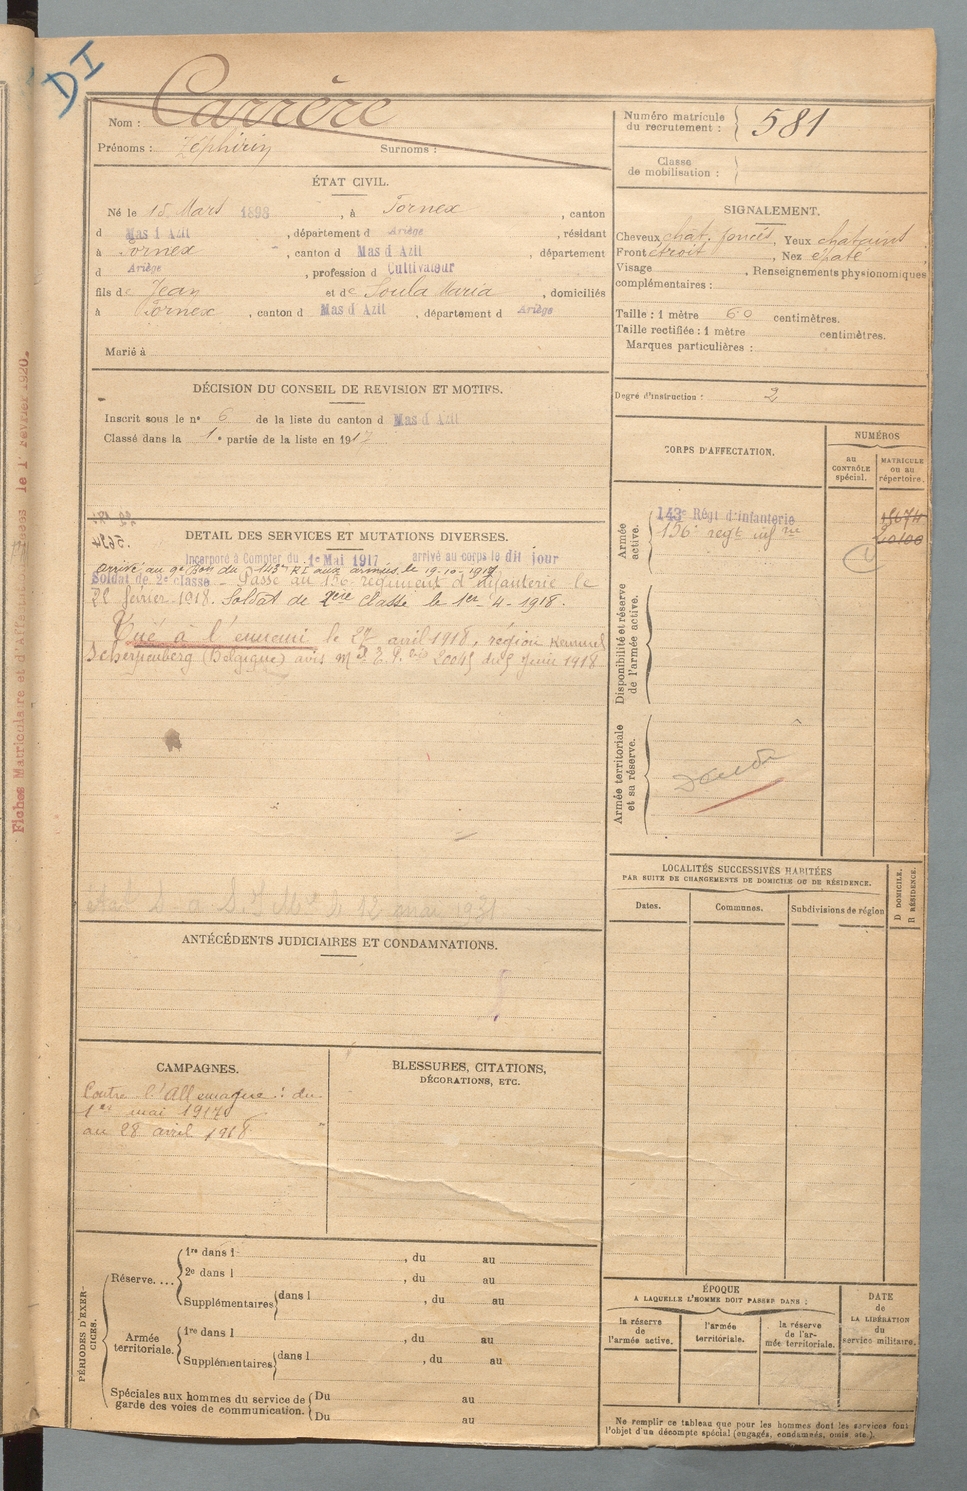 DI
Nom : Carrère
Prénoms : Zéphirin Surnoms :
Numéro matricule
du recrutement : 581
Classe
de mobilisation :
ÉTAT CIVIL.
Né le 15 Mars 1898, à Fornex, canton
d Mas d Azil, département d Ariège, résidant
à Fornex, canton d Mas d Azil, département
d Ariège, profession d Cultivateur
fils de Jean et de Soula Maria, domiciliés
à Fornex, canton d Mas d Azil, département d Ariège
Marié à
SIGNALEMENT.
Cheveux chat. foncés, Yeux chatains
Front étroit, Nez épaté
Visage . Renseignements physionomiques
complémentaires :
Taille : 1 mètre 60 centimètres.
Taille rectifiée : 1 mètre centimètres.
Marques particulières :
Degré d'instruction : 2
DÉCISION DU CONSEIL DE REVISION ET MOTIFS.
Inscrit sous le n° 6 de la liste du canton d Mas d Azil
Classé dans la 1e partie de la liste en 1917
CORPS D'AFFECTATION.
NUMÉROS
au
CONTRÔLE
spécial.
MATRICULE
ou au
répertoire.
Armée
active.
143e Régt d'Infanterie
156e regt infrie
Disponibilité et réserve
de l'armée active.
Armée territoriale
et sa réserve.
DÉTAIL DES SERVICES ET MUTATIONS DIVERSES.
Incorporé à Compter du 1er Mai 1917 arrivé au corps le dit jour
arrivé au 9e Bon du 143e RI aux armées le 19-10-1917
Soldat de 2e classe Passé au 156e régiment d'infanterie le
22 février 1918. Soldat de 1ère classe le 1er-4-1918.
Tué à l'ennemi le 27 avril 1918, région Kemmel
Scherpenberg (Belgique) avis
12 mai 1931
Fiches Matriculaire et d'Affectation le 1 Février 1920.
LOCALITÉS SUCCESSIVES HABITÉES
PAR SUITE DE CHANGEMENTS DE DOMICILE OU DE RÉSIDENCE.
Dates.
Communes.
Subdivisions de région
D DOMICILE.
R RÉSIDENCE.
ANTÉCÉDENTS JUDICIAIRES ET CONDAMNATIONS.
CAMPAGNES.
Contre l'Allemagne : du
1er mai 1917
au 28 avril 1918
BLESSURES, CITATIONS,
DÉCORATIONS, ETC.
PÉRIODES D'EXER-
CICES.
Réserve....
1re dans l , du au
2e dans l , du au
Supplémentaires dans l , du au
Armée
territoriale.
1re dans l , du au
Supplémentaires dans l , du au
Spéciales aux hommes du service de
garde des voies de communication.
Du au
Du au
ÉPOQUE
A LAQUELLE L'HOMME DOIT PASSER DANS :
la réserve
de
l'armée active.
l'armée
territoriale.
la réserve
de l'ar-
mée territoriale.
DATE
de
LA LIBÉRATION
du
service militaire.
Ne remplir ce tableau que pour les hommes dont les services font
l'objet d'un décompte spécial (engagés, condamnés, omis, etc.).